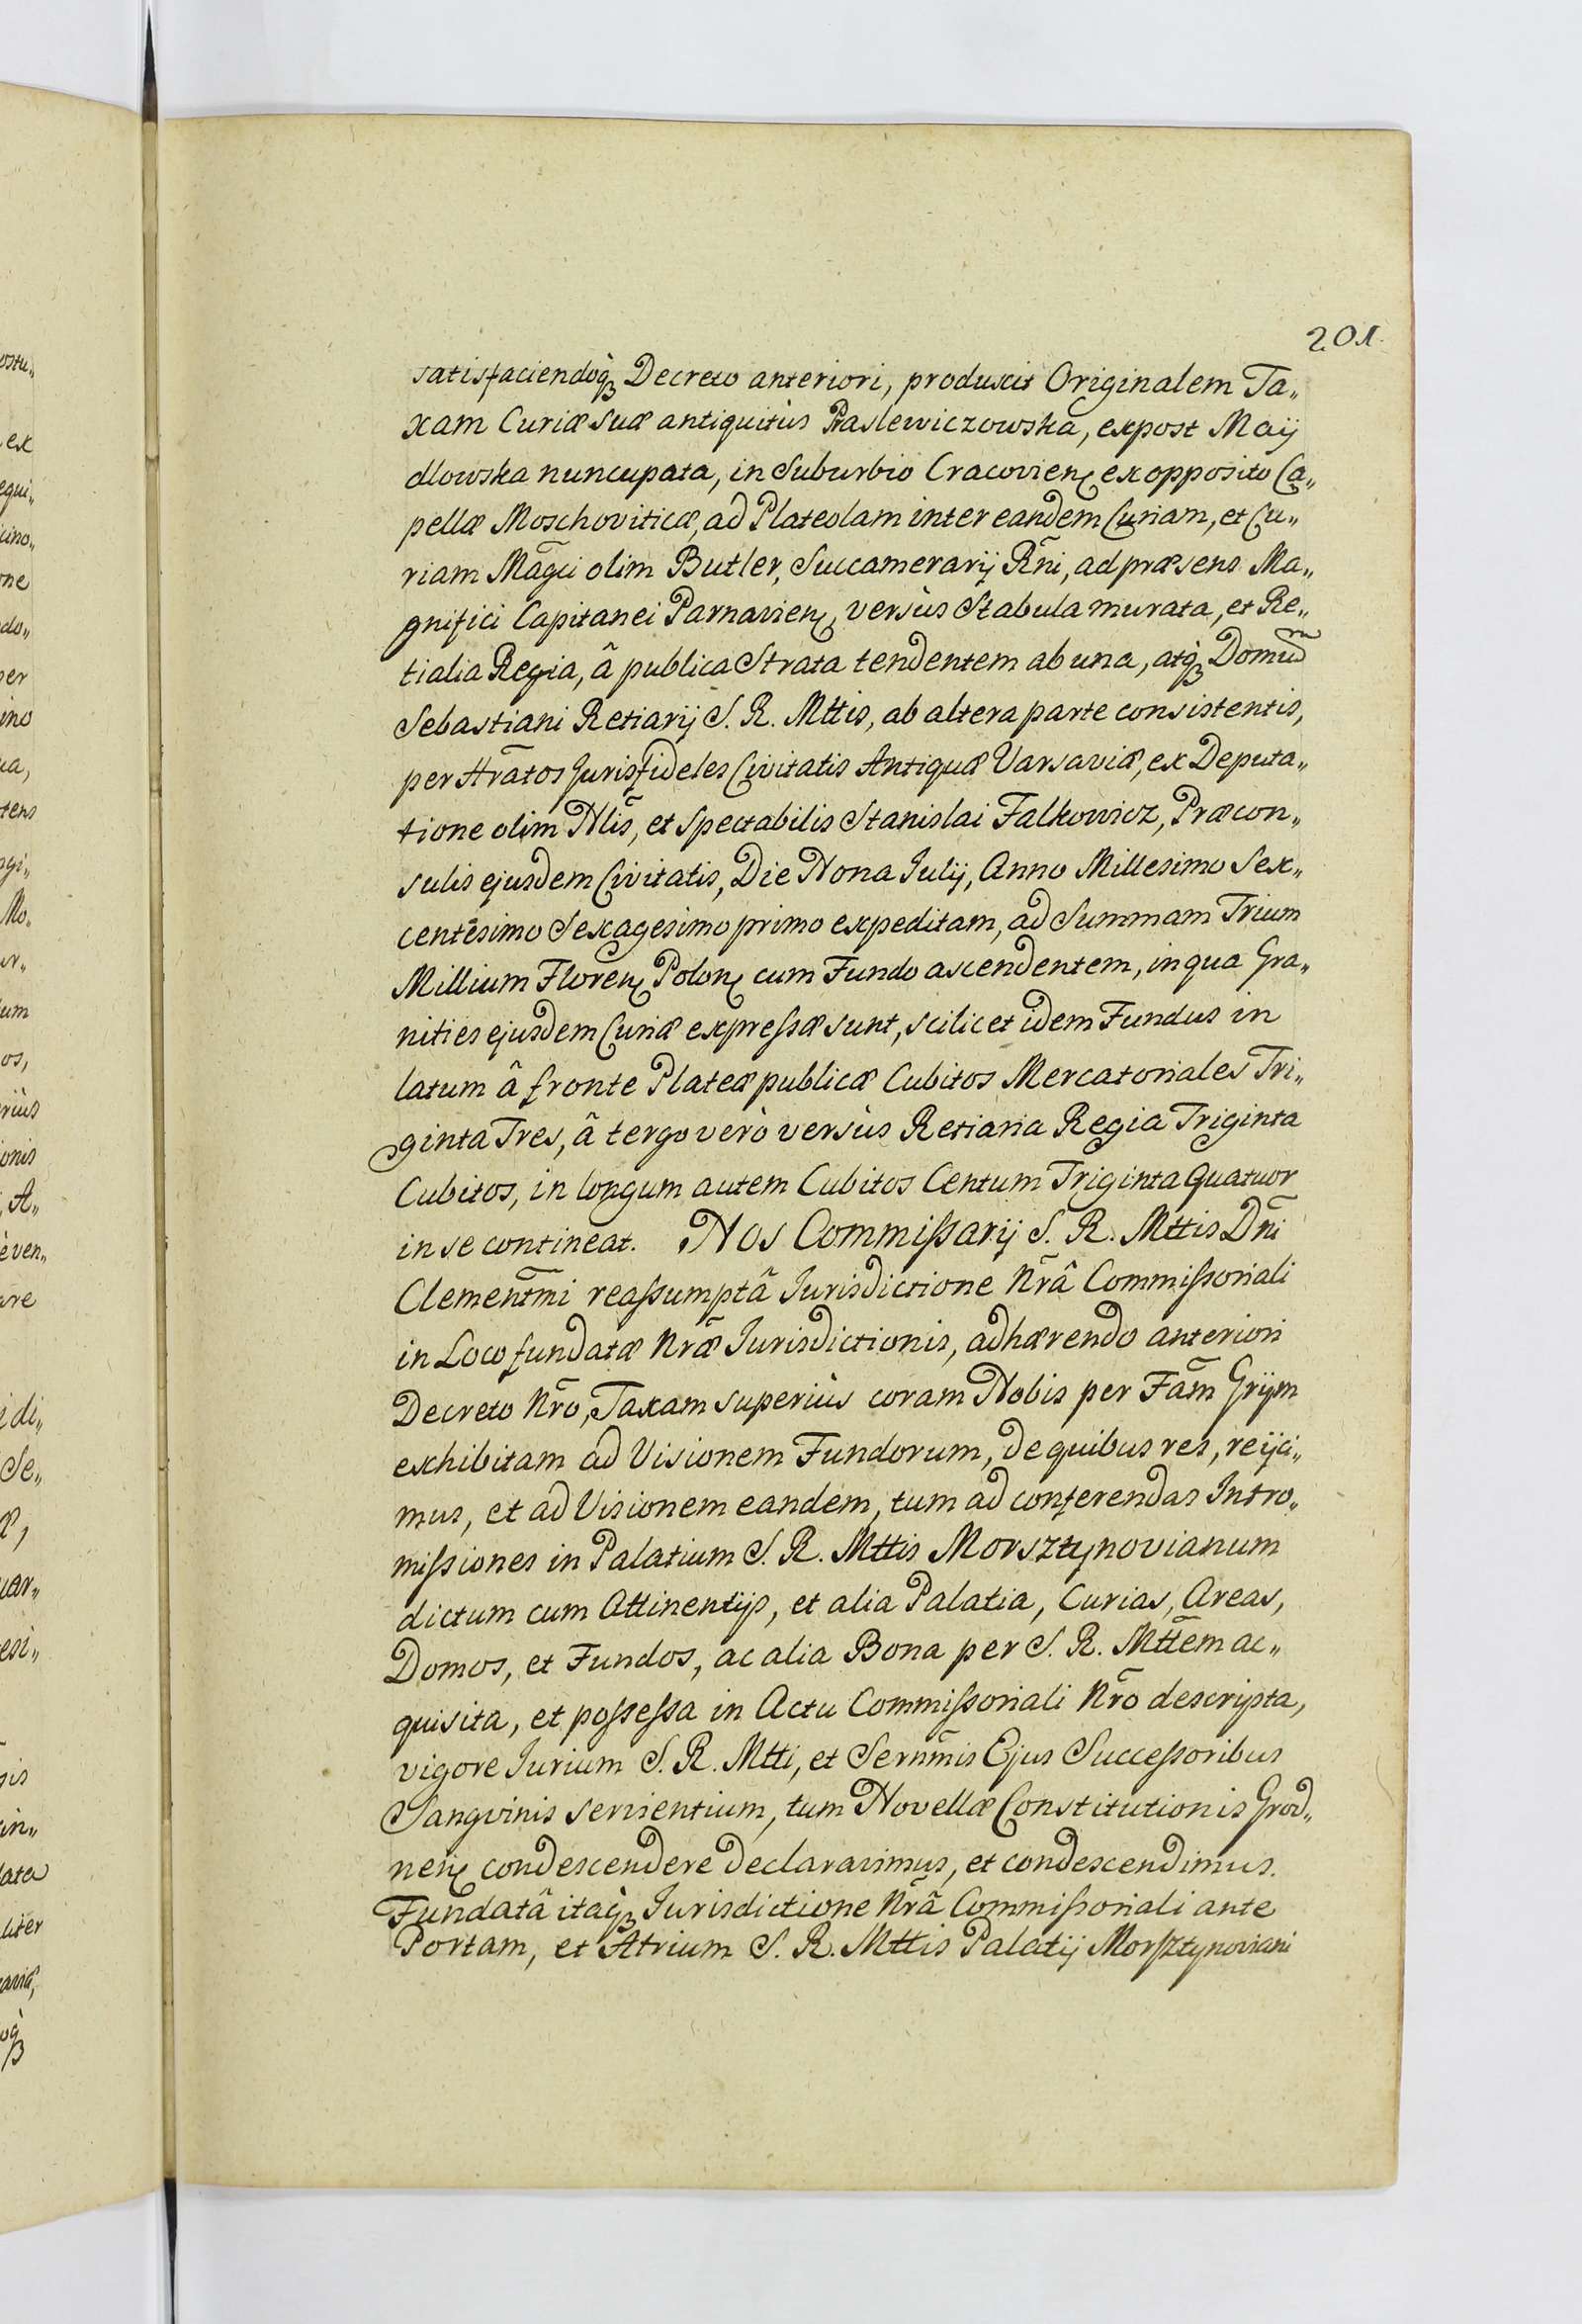 201.
satisfaciendoq₃ Decreto anteriori, produxit Originalem Ta„
xam Curiæ suæ antiquitùs Praslewiczowska, expost Maij
dlowska nuncupata, in Suburbio Cracovień ex opposito Ca„
pellæ Moschoviticæ, ad Plateolam inter eandem Curiam, et Cu„
riam Magci olim Butler, Succamerarij Rni, ad præsens Ma„
gnifici Capitanei Parnavień, versùs Stabula murata, et Re„
tialia Regia, â publica Strata tendentem ab una, atq₃ Domum
Sebastiani Retiarij S. R. Mttis, ab altera parte consistentis,
per Hratos Jurisfideles Civitatis Antiquæ Varsaviæ, ex Deputa„
tione olim Nlis, et Spectabilis Stanislai Falkowicz, Præcon„
sulis ejusdem Civitatis, Die Nona Julij, Anno Millesimo Sex„
centesimo Sexagesimo primo expeditam, ad Summam Trium
Millium Floreń Poloń cum Fundo ascendentem, in qua Gra„
nities ejusdem Curiæ expressæ sunt, scilicet idem Fundus in
latum â fronte Plateæ publicæ Cubitos Mercatoriales Tri„
ginta Tres, â tergo verò versùs Retiaria Regia Triginta
Cubitos, in longum autem Cubitos Centum Triginta Quatuor
in se contineat. Nos Commissarij S. R. Mttis Dni
Clementmi reassumptâ Jurisdictione Nrâ Commissoriali
in Loco fundatæ Nræ Jurisdictionis, adhærendo anteriori
Decreto Nro, Taxam superiùs coram Nobis per Fam Grijm
exhibitam ad Visionem Fundorum, de quibus res, reijci„
mus, et ad Visionem eandem, tum ad conferendas Intro„
missiones in Palatium S. R. Mttis Morsztynovianum
dictum cum Attinentijs, et alia Palatia, Curias, Areas,
Domos, et Fundos, ac alia Bona per S. R. Mttem ac„
quisita, et possessa in Actu Commissoriali Nro descripta,
vigore Jurium S. R. Mtti, et Sernmis Ejus Successoribus
Sangvinis servientium, tum Novellæ Constitutionis Grod„
neń condescendere declaravimus, et condescendimus.
Fundatâ itaq₃ Jurisdictione Nrâ Commissoriali ante
Portam, et Atrium S. R. Mttis Palatij Morsztynoviani